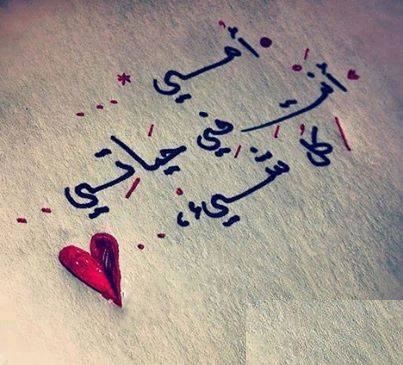 أمي
في حياتي
كل شيء،